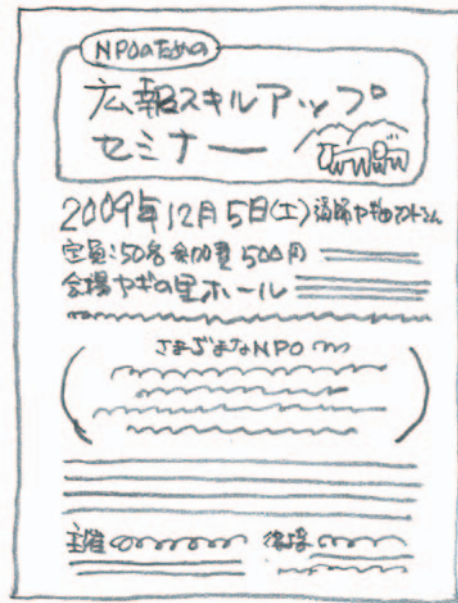 NPOのための
広報スキルアップ
セミナー
2009年12月5日(土)講師
定員:50名 参加費 500円
会場 ヤギの里ホール
さまざまなNPO
主催 後援